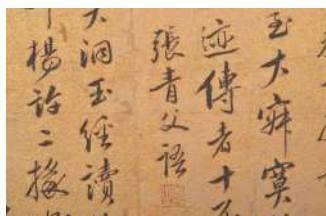 至大寂寞
迹傳者十
張青父語
大洞玉經讀
楊許二掾